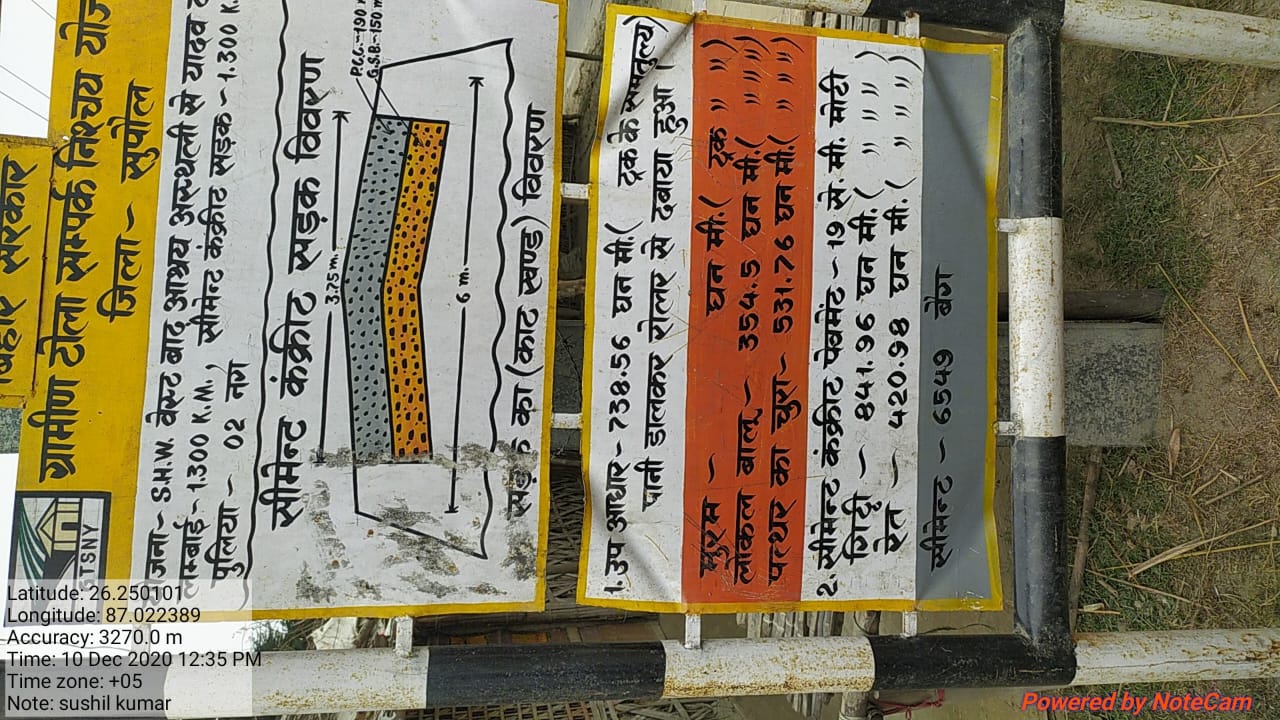 बिहार सरकार
ग्रामीण टोला सम्पर्क निश्चय योज
जिला- सुपौल
GTSNY
जना- S.H.W. वेस्ट बाद आश्रय अस्थली से यादव ट
लम्बाई-1.300 K.M., सीमेंट कंक्रीट सड़क-1.300 K.
पुलिया - 02 नग
सीमेन्ट कंक्रीट सड़क विवरण
P.C.C.-190
G.S.B.-150 m
3.75 m.
6 m.
सड़क का (काट खण्ड) विवरण
1. उप आधार-738.56 घन मी.( ट्रक के समतुल्य)
पानी डालकर रोलर से दबाया हुआ (
मुरम - घन मी.( ट्रक " )
लोकल बालू - 354.5 घन मी.( " " )
पत्थर का चुरा- 531.76 घन मी.( " " )
2. सीमेन्ट कंक्रीट पेवमेंट-19 से.मी. मोटी
गिट्टी - 841.96 घन मी.( " " " )
रेत - 420.98 घन मी.( " " " )
सीमेन्ट - 6549 बैग
Latitude: 26.250101
Longitude: 87.022389
Accuracy: 3270.0 m
Time: 10 Dec 2020 12:35 PM
Time zone: +05
Note: sushil kumar
Powered by NoteCam